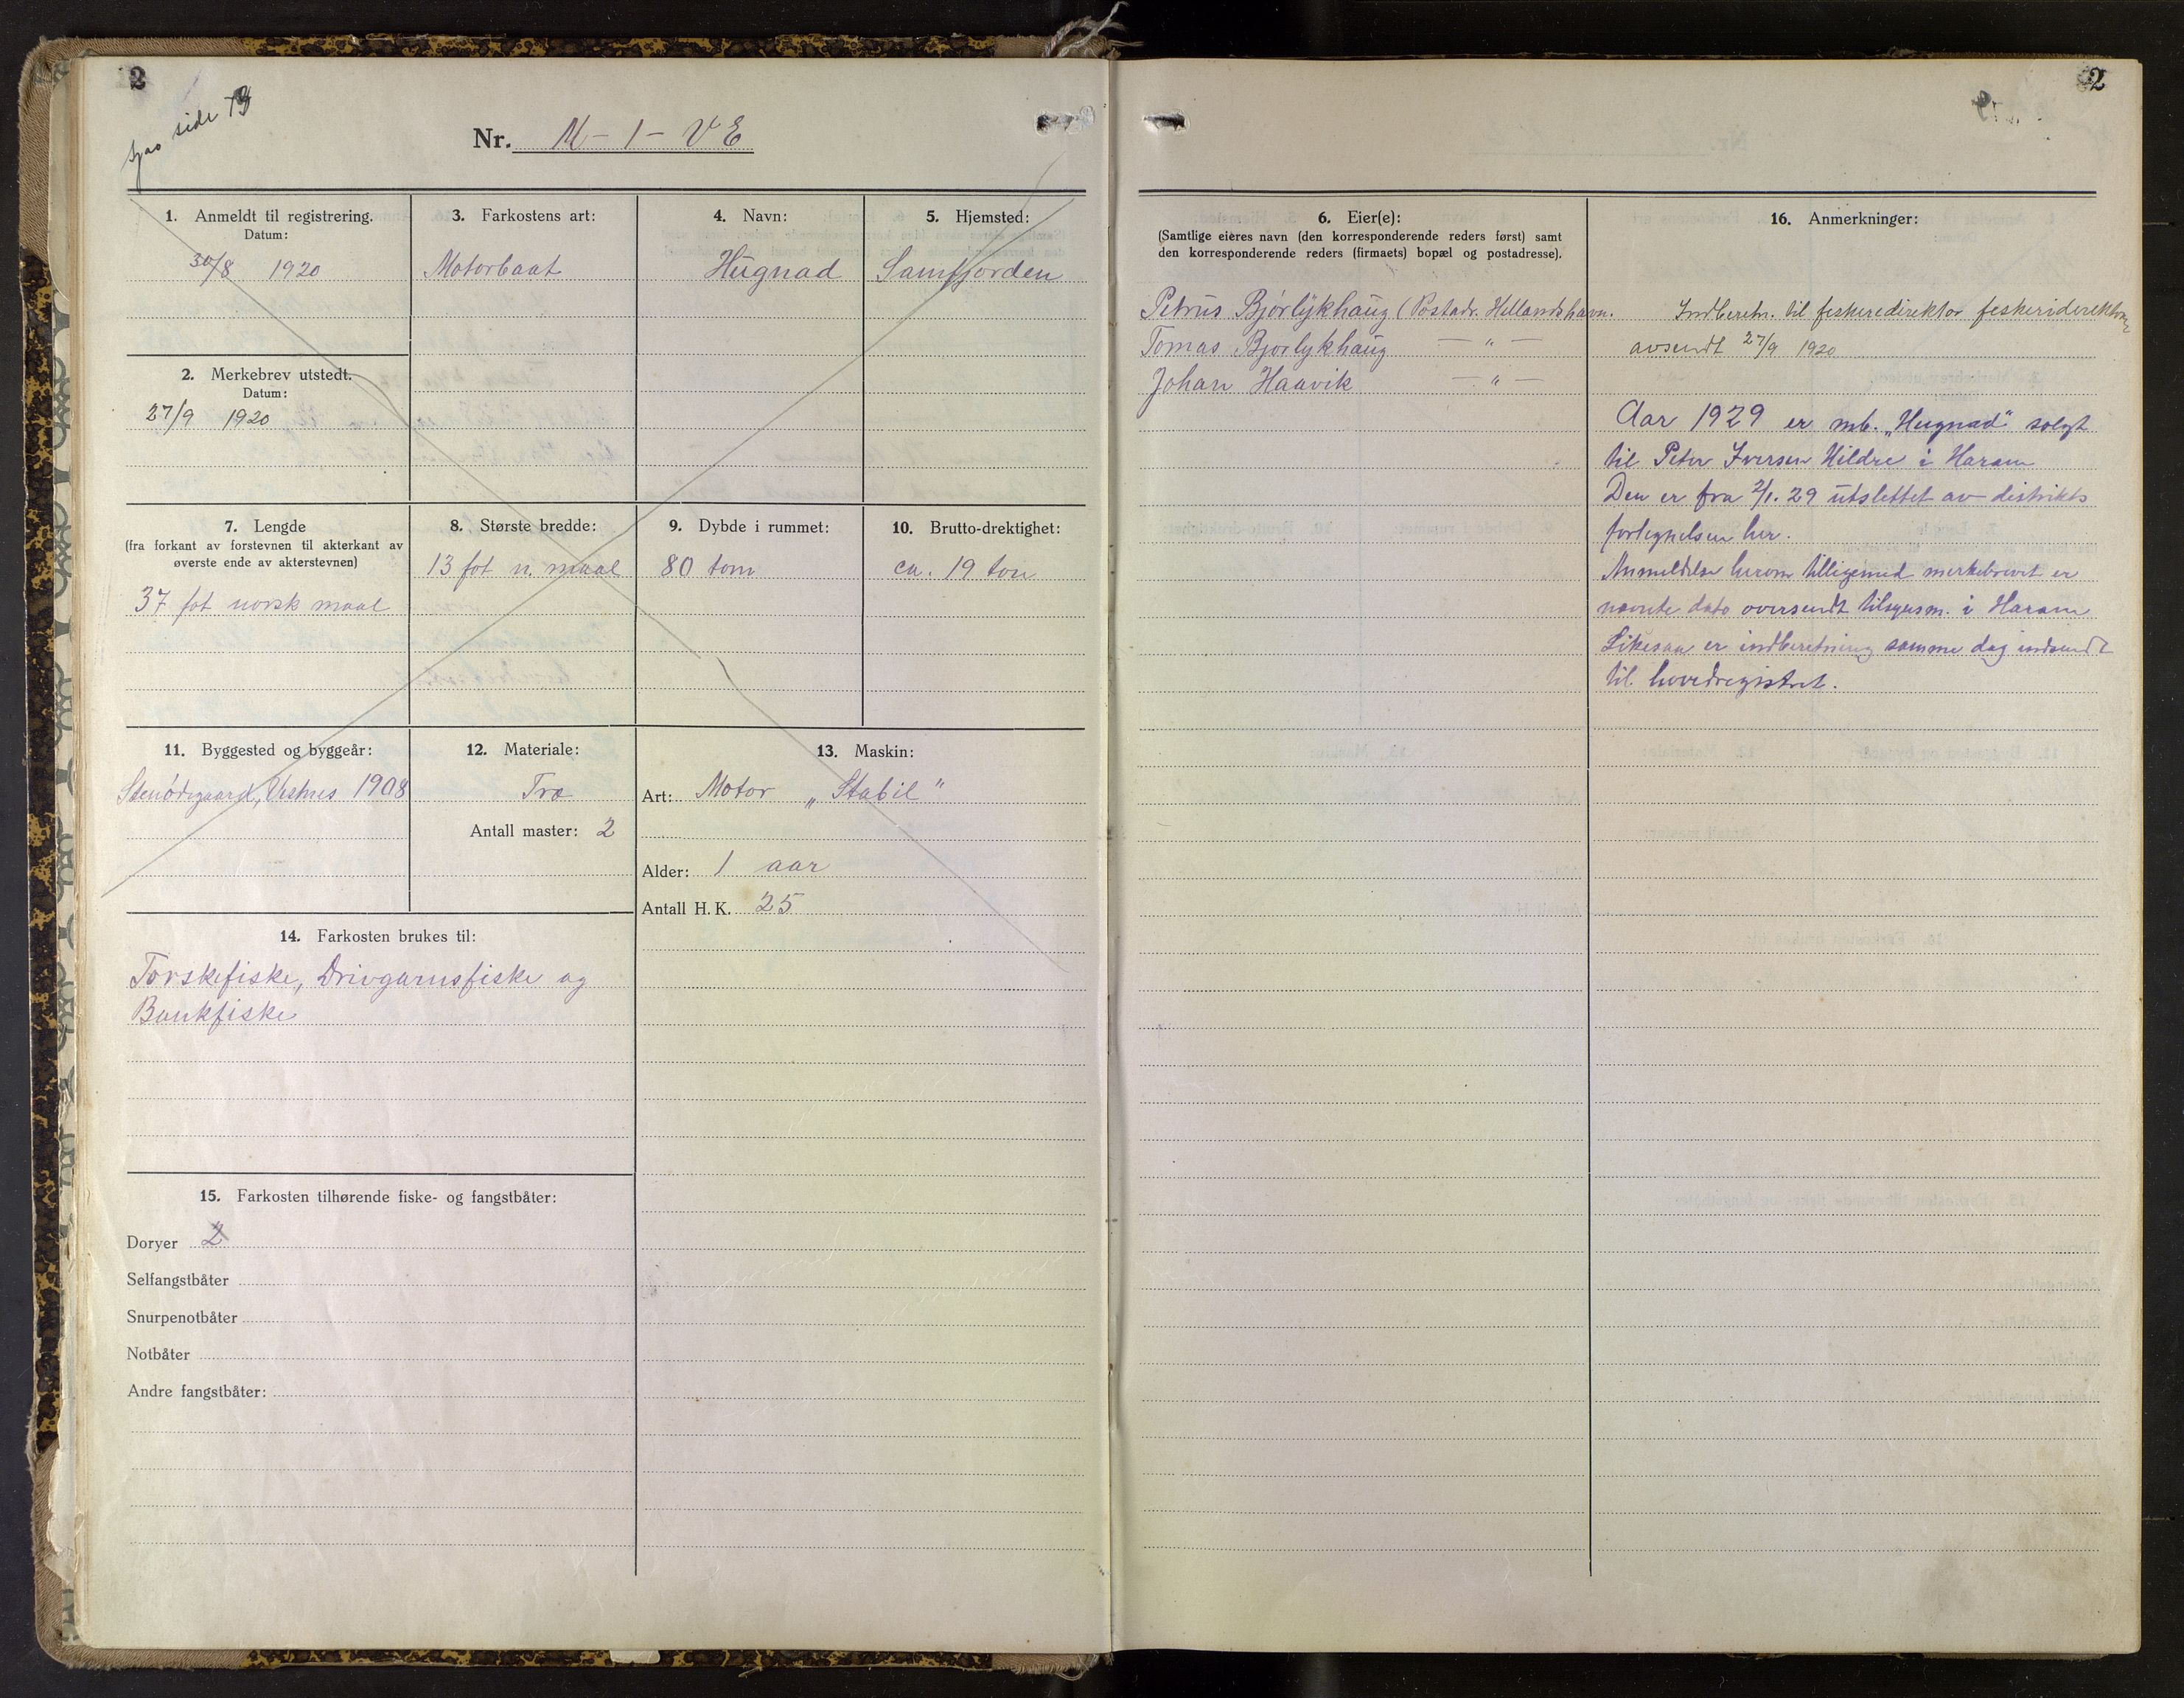 2
side 79
Nr. M - 1 - VE
1. Anmeldt til registrering.
Datum:
30/8 1920
2. Merkebrev utstedt.
Datum:
27/9 1920
3. Farkostens art:
Motorbaat
4. Navn:
Hugnad
5. Hjemsted:
Samfjorden
7. Lengde
(fra forkant av forstevnen til akterkant av
øverste ende av akterstevnen)
37 fot norsk maal
8. Største bredde:
13 fot n. maal
9. Dybde i rummet:
80 tom
10. Brutto-drektighet:
ca. 19 ton
11. Byggested og byggeår:
Vestnes 1908
12. Materiale:
Træ
Antall master: 2
13. Maskin:
Art: Motor „Stabil"
Alder: 1 aar
Antall H. K. 25
14. Farkosten brukes til:
Torskefiske, Drivgarnsfiske og
Bankfiske
15. Farkosten tilhørende fiske- og fangstbåter:
Doryer 2
Selfangstbåter
Snurpenotbåter
Notbåter
Andre fangstbåter:
2
6. Eier(e):
(Samtlige eieres navn (den korresponderende reders først) samt
den korresponderende reders (firmaets) bopæl og postadresse).
Petrus Bjørlykhaug (Postadr. Hellandshavn.
Tomas Bjørlykhaug — " —
Johan Haavik — " —
16. Anmerkninger:
Indberetn. til fiskeredirektør
avsendt 27/9 1920
Aar 1929 er mb. „Hugnad" solgt
til Peter Iversen Hildre i Haram
Den er fra 2/1. 29 utslettet av distrikts
fortegnelsen her.
Anmeldelse herom tilligemed merkebrevet er
nævnte dato oversendt tilsynsm. i Haram
Likesaa er indberetning samme dag indsendt
til hovedregistret.